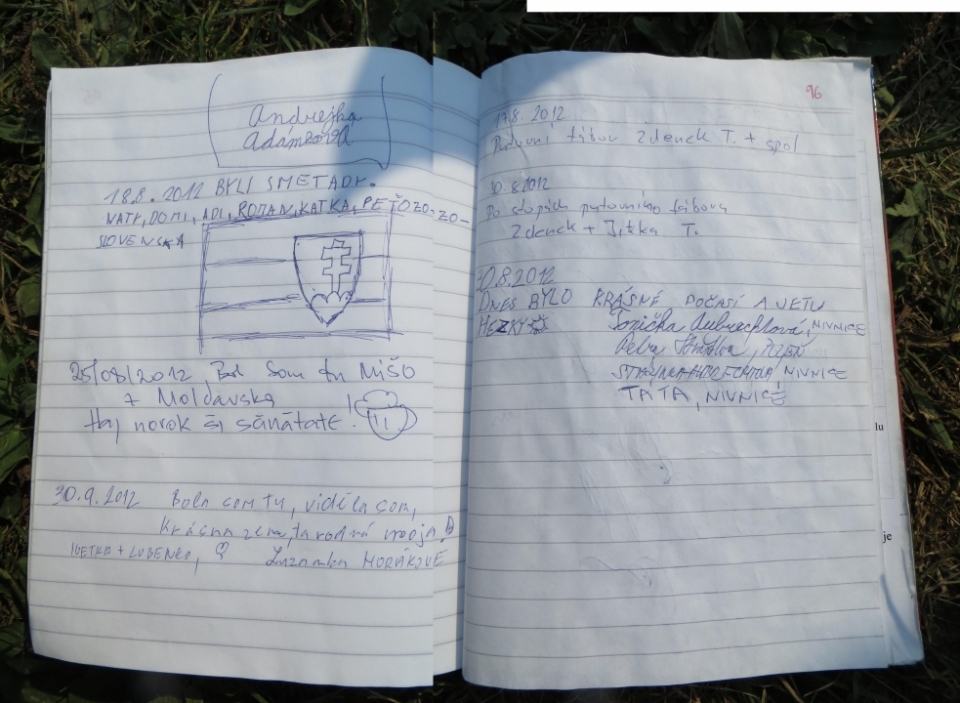 Andrejka
Adámková
18.8. 2012 BYLI SMETÁDY.
NATY, DOMI, ADI, ROMAN, KATKA, PEŤO ZO-ZO-
SLOVENSKA
25/08/2012, Bol som tu MIŠO
z Moldavska
Haj norok ši sănătate!
30.9.2012 Bola som tu, viděla som,
krásna zem, ta rodná moja!
IVETKA + LUBENKO, Zuzanka HORÁKOVE
96
17.8. 2012
Putovní tábor Zdenek T. + spol
30.8.2012
Po stopách putovního tábora
Zdenek + Jitka T.
30.8.2012
DNES BYLO KRÁSNÉ POČASÍ A VETU
HEZKÝ
Tonička, NIVNICE
Petra
NIVNICE
TATA, NIVNICE
lu
je